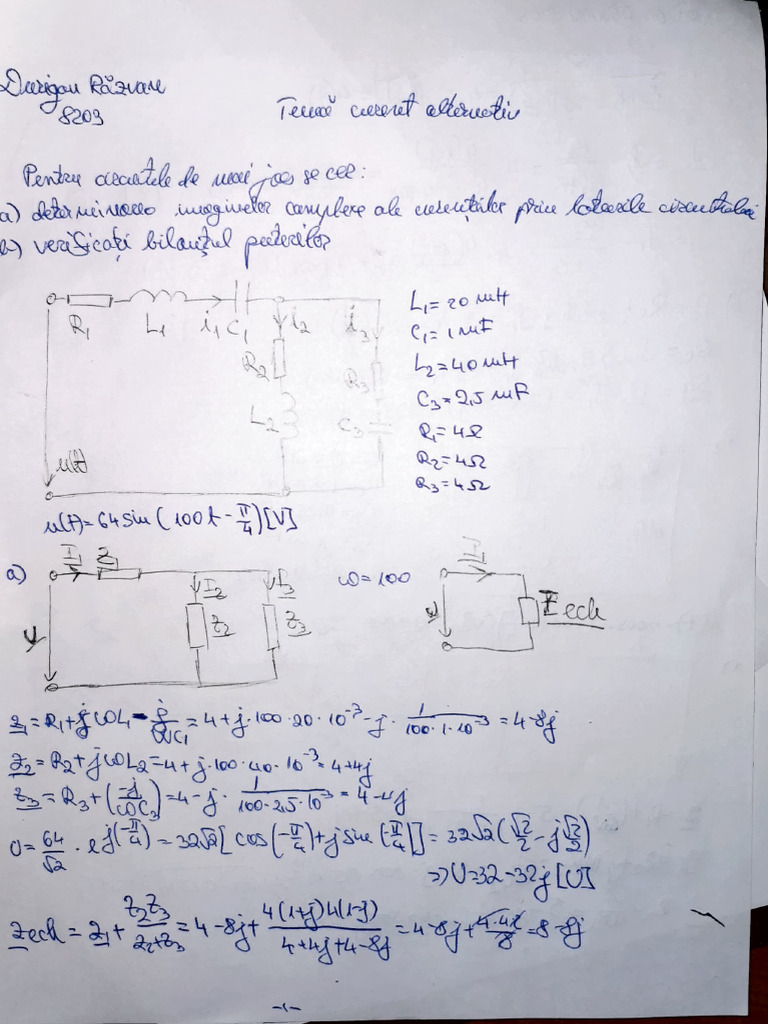 Răzvan
8203
Temă curent alternativ
Pentru circuitele de mai jos se cer:
a) determinarea imaginilor complexe ale curenților prin laturile circuitului
b) verificați bilanțul puterilor
R₁ L₁ i₁ C₁ i₂ i₃
R₂ R₃
L₂ C₃
u(t)
L₁ = 20 mH
C₁ = 1 mF
L₂ = 40 mH
C₃ = 2,5 mF
R₁ = 4Ω
R₂ = 4Ω
R₃ = 4Ω
u(t) = 64 sin (100t - π/4) [V]
a) I₁ Z₁ I₂ I₃ ω = 100 I₁
U Z₂ Z₃ U Zech
Z₁ = R₁ + jωL - j/ωC₁ = 4 + j·100·20·10⁻³ - j· 1/100·1·10⁻³ = 4-8j
Z₂ = R₂ + jωL₂ = 4 + j·100·40·10⁻³ = 4+4j
Z₃ = R₃ + (-j/ωC₃) = 4 - j· 1/100·2,5·10³ = 4-4j
U = 64/√2 · e^j(-π/4) = 32√2 [cos(-π/4) + j sin(-π/4)] = 32√2 (√2/2 - j√2/2)
=> U = 32 - 32j [V]
Zech = Z₁ + Z₂Z₃/Z₂+Z₃ = 4-8j + 4(1+j)4(1-j)/4+4j+4-8j = 4-8j + 4·4·2/8 = 8-8j
-1-